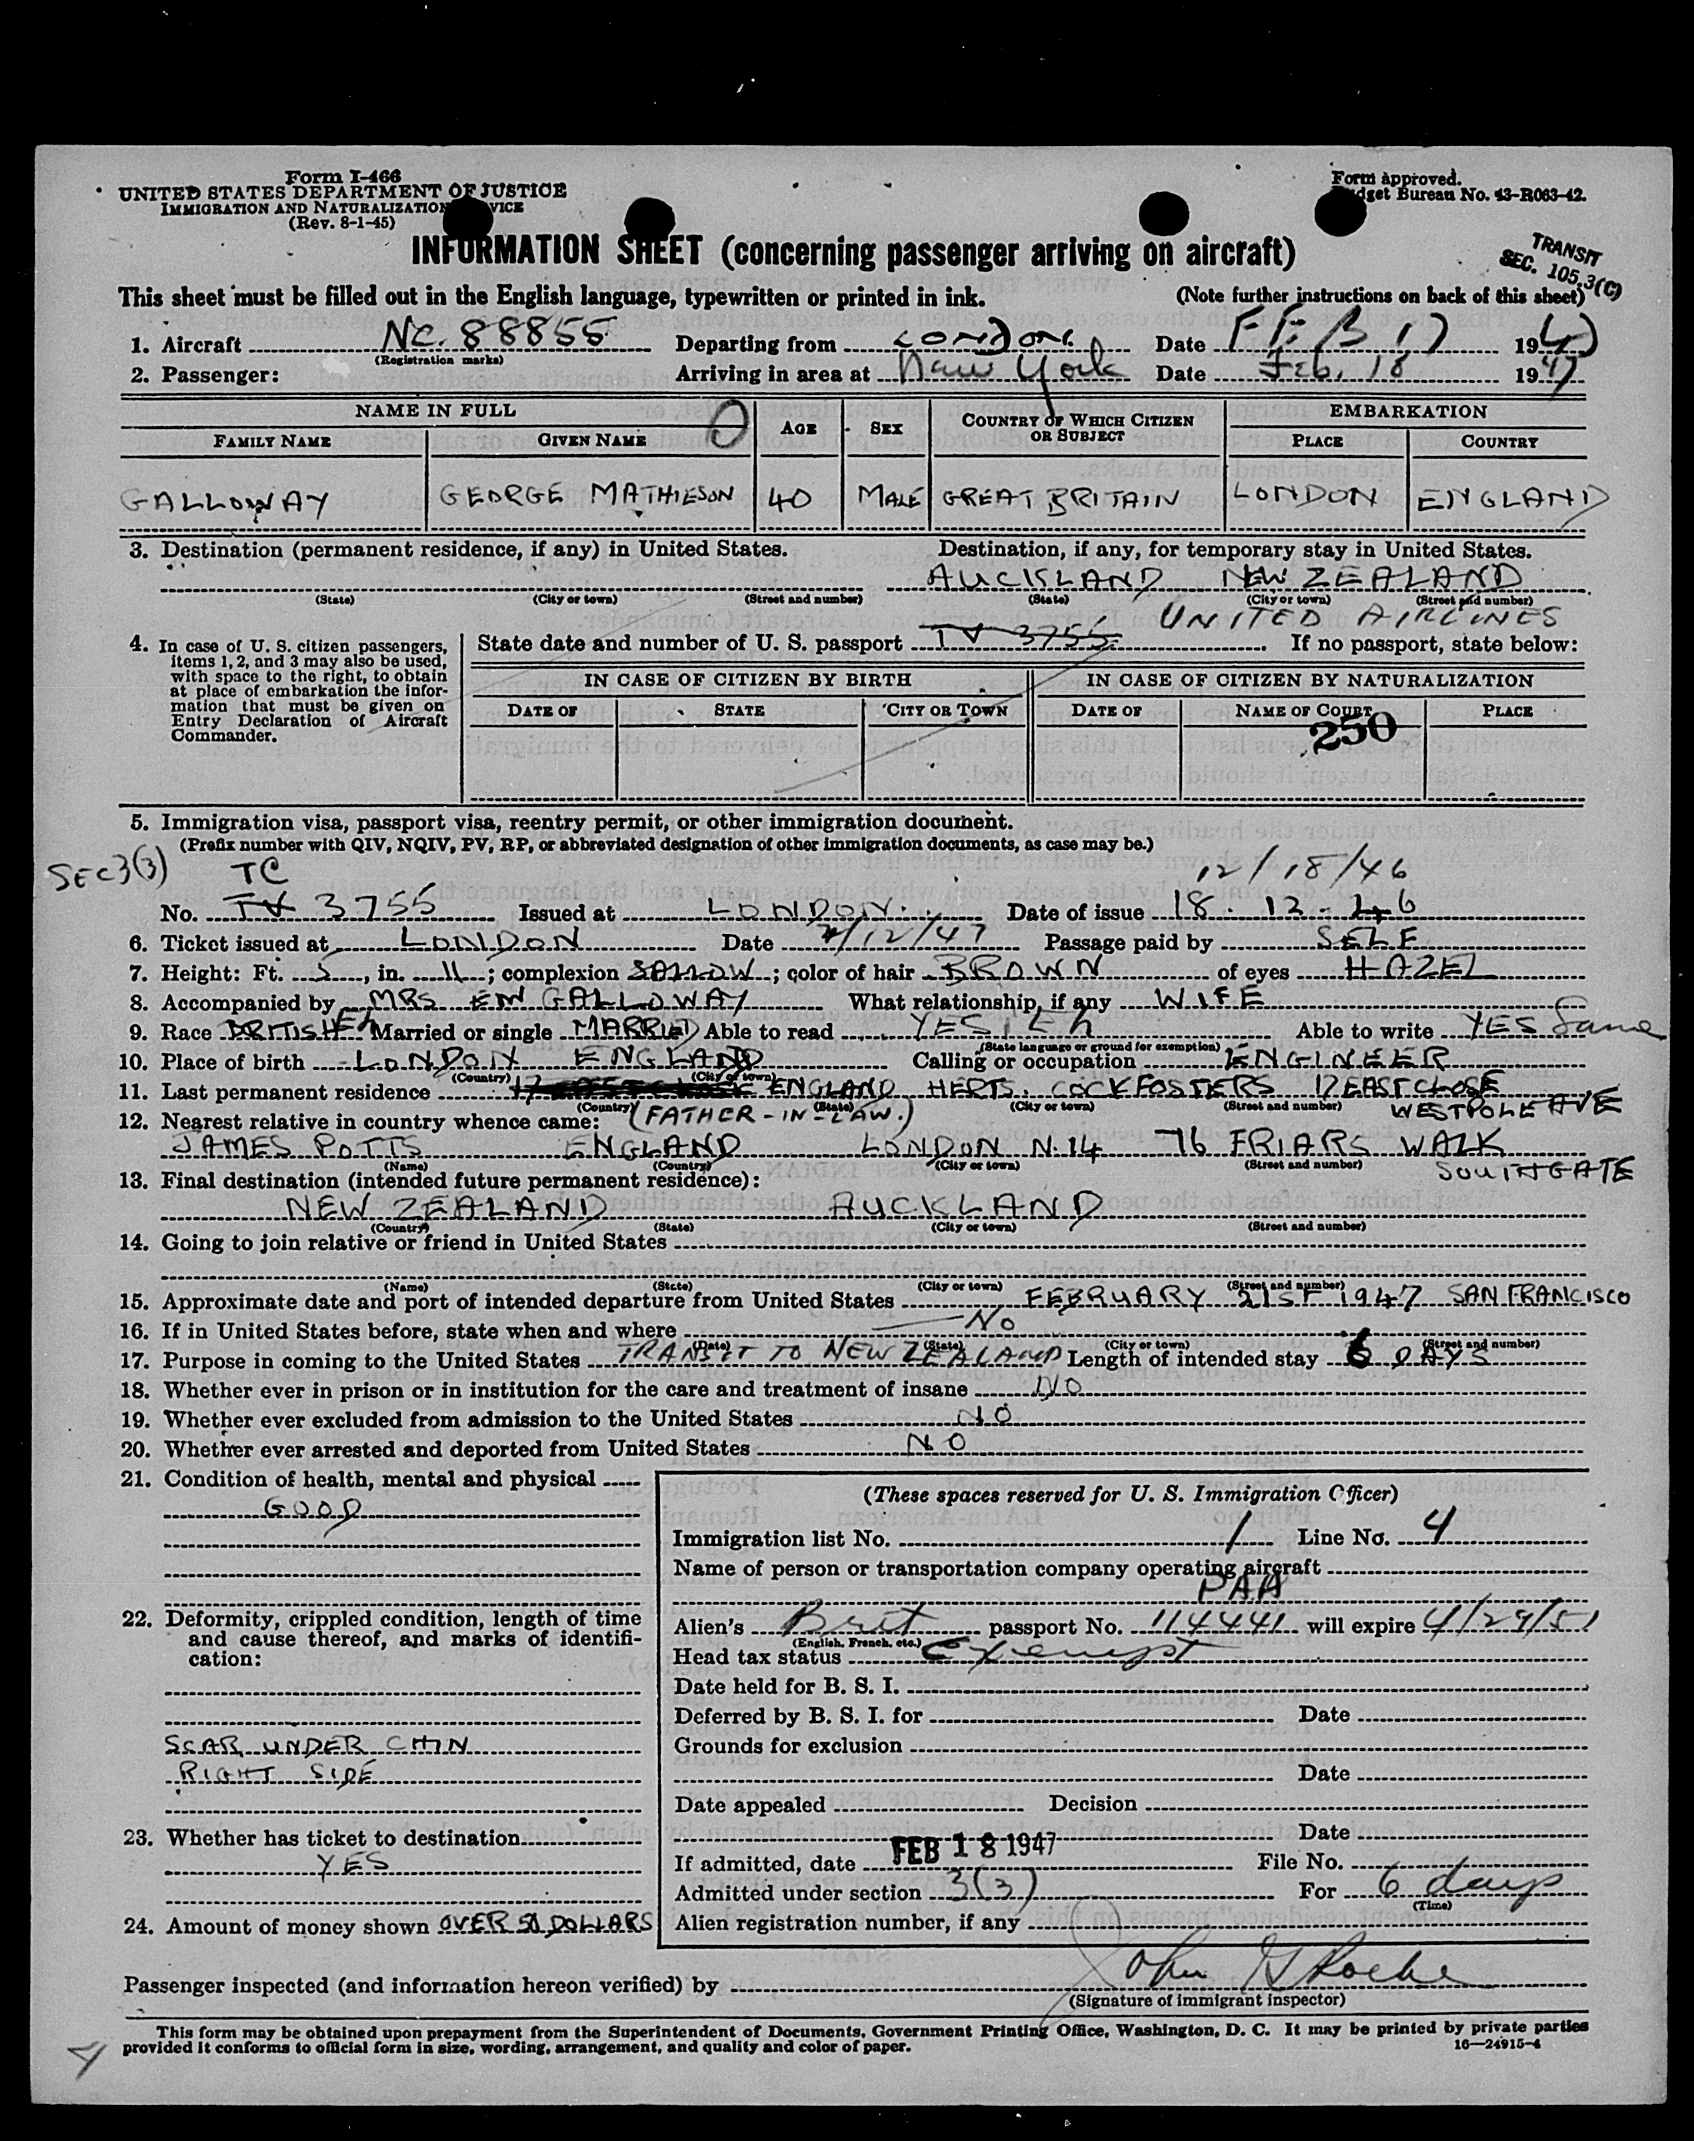 Form I-466
UNITED STATES DEPARTMENT OF JUSTICE
IMMIGRATION AND NATURALIZATION VICE
(Rev. 8-1-45)
Form approved.
dget Bureau No. 43-R063-42.
INFORMATION SHEET (concerning passenger arriving on aircraft)
TRANSIT
SEC. 105.3(C)
This sheet must be filled out in the English language, typewritten or printed in ink. (Note further instructions on back of this sheet)
1. Aircraft NC. 88855 Departing from LONDON. Date FEB 17 1947
(Registration marks)
2. Passenger: Arriving in area at New York Date Feb. 18 1947
NAME IN FULL AGE SEX COUNTRY OF WHICH CITIZEN OR SUBJECT EMBARKATION
FAMILY NAME GIVEN NAME PLACE COUNTRY
GALLOWAY GEORGE MATHIESON 40 MALE GREAT BRITAIN LONDON ENGLAND
3. Destination (permanent residence, if any) in United States. Destination, if any, for temporary stay in United States.
AUCKLAND NEW ZEALAND
(State) (City or town) (Street and number) (State) (City or town) (Street and number)
UNITED AIRLINES
4. In case of U. S. citizen passengers, items 1, 2, and 3 may also be used, with space to the right, to obtain at place of embarkation the information that must be given on Entry Declaration of Aircraft Commander.
State date and number of U. S. passport TV 3755. If no passport, state below:
IN CASE OF CITIZEN BY BIRTH IN CASE OF CITIZEN BY NATURALIZATION
DATE OF STATE CITY OR TOWN DATE OF NAME OF COURT PLACE
250
5. Immigration visa, passport visa, reentry permit, or other immigration document.
(Prefix number with QIV, NQIV, PV, RP, or abbreviated designation of other immigration documents, as case may be.)
SEC 3(3) TC 12/18/46
No. TV 3755 Issued at LONDON. Date of issue 18. 12. 46
6. Ticket issued at LONDON Date /12/47 Passage paid by SELF
7. Height: Ft. 5, in. 11; complexion SALLOW; color of hair BROWN of eyes HAZEL
8. Accompanied by MRS EM GALLOWAY What relationship, if any WIFE
9. Race BRITISH Married or single MARRIED Able to read YES Able to write YES Same
(State language or ground for exemption)
10. Place of birth LONDON ENGLAND Calling or occupation ENGINEER
(Country) (City or town)
11. Last permanent residence ENGLAND HERTS. COCKFOSTERS 17 EAST CLOSE
(Country) (State) (City or town) (Street and number) WESTPOLE AVE
12. Nearest relative in country whence came: (FATHER-IN-LAW.)
JAMES POTTS ENGLAND LONDON N.14 76 FRIARS WALK
(Name) (Country) (City or town) (Street and number) SOUTHGATE
13. Final destination (intended future permanent residence):
NEW ZEALAND AUCKLAND
(Country) (State) (City or town) (Street and number)
14. Going to join relative or friend in United States
(Name) (State) (City or town) (Street and number)
15. Approximate date and port of intended departure from United States FEBRUARY 21ST 1947 SAN FRANCISCO
16. If in United States before, state when and where NO
(Date) (State) (City or town) (Street and number)
17. Purpose in coming to the United States TRANSIT TO NEW ZEALAND Length of intended stay 6 DAYS
18. Whether ever in prison or in institution for the care and treatment of insane NO
19. Whether ever excluded from admission to the United States NO
20. Whether ever arrested and deported from United States NO
21. Condition of health, mental and physical
GOOD
22. Deformity, crippled condition, length of time and cause thereof, and marks of identification:
SCAR UNDER CHIN
RIGHT SIDE
23. Whether has ticket to destination
YES
24. Amount of money shown OVER 50 DOLLARS
(These spaces reserved for U. S. Immigration Officer)
Immigration list No. 1 Line No. 4
Name of person or transportation company operating aircraft
PAA
Alien's Brit passport No. 114441 will expire 4/29/51
(English, French, etc.)
Head tax status Exempt
Date held for B. S. I.
Deferred by B. S. I. for Date
Grounds for exclusion
Date
Date appealed Decision
Date
If admitted, date FEB 18 1947 File No.
Admitted under section 3(3) For 6 days
(Time)
Alien registration number, if any
Passenger inspected (and information hereon verified) by John G Roche
(Signature of immigrant inspector)
This form may be obtained upon prepayment from the Superintendent of Documents, Government Printing Office, Washington, D. C. It may be printed by private parties
provided it conforms to official form in size, wording, arrangement, and quality and color of paper. 16—24915-4
4